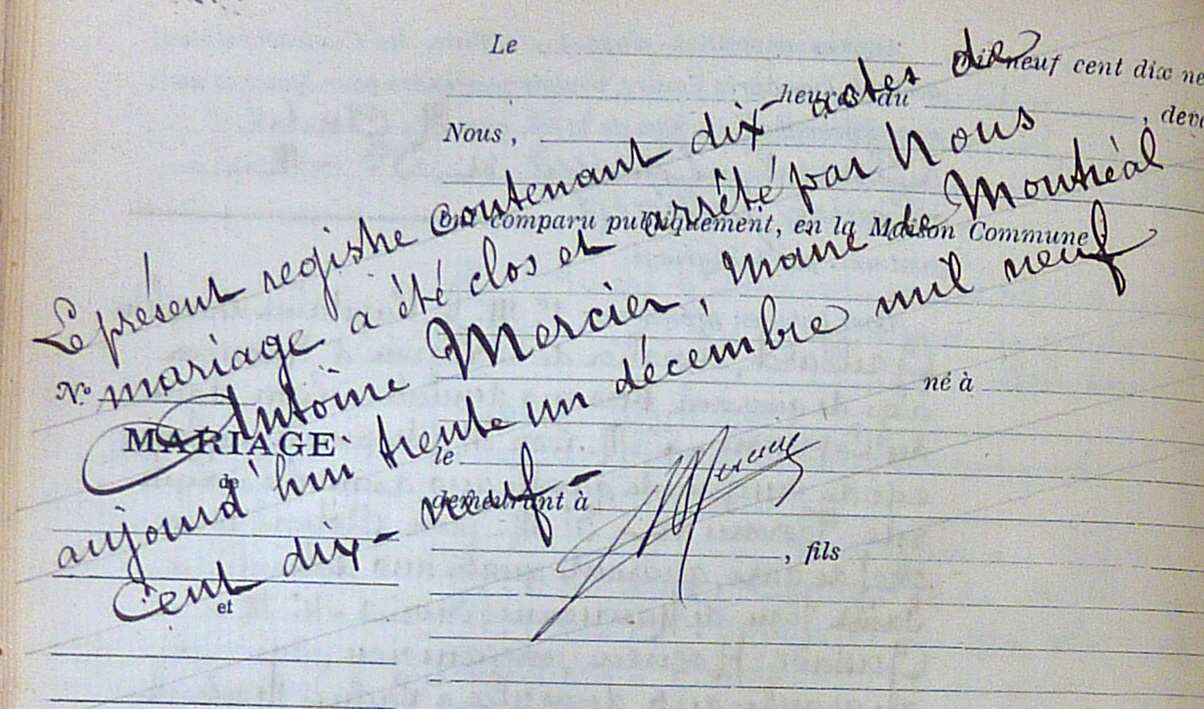 Le neuf cent dix ne
heures du
Nous , , deva
Le présent registre contenant dix actes de
ont comparu publiquement, en la Maison Commune
mariage a été clos et arrêté par Nous
No
Antoine Mercier, Maire de Montréal
né à
MARIAGE
aujourd'hui trente un décembre mil neuf
le
de
demeurant à
cent dix-neuf - Mercier
, fils
et